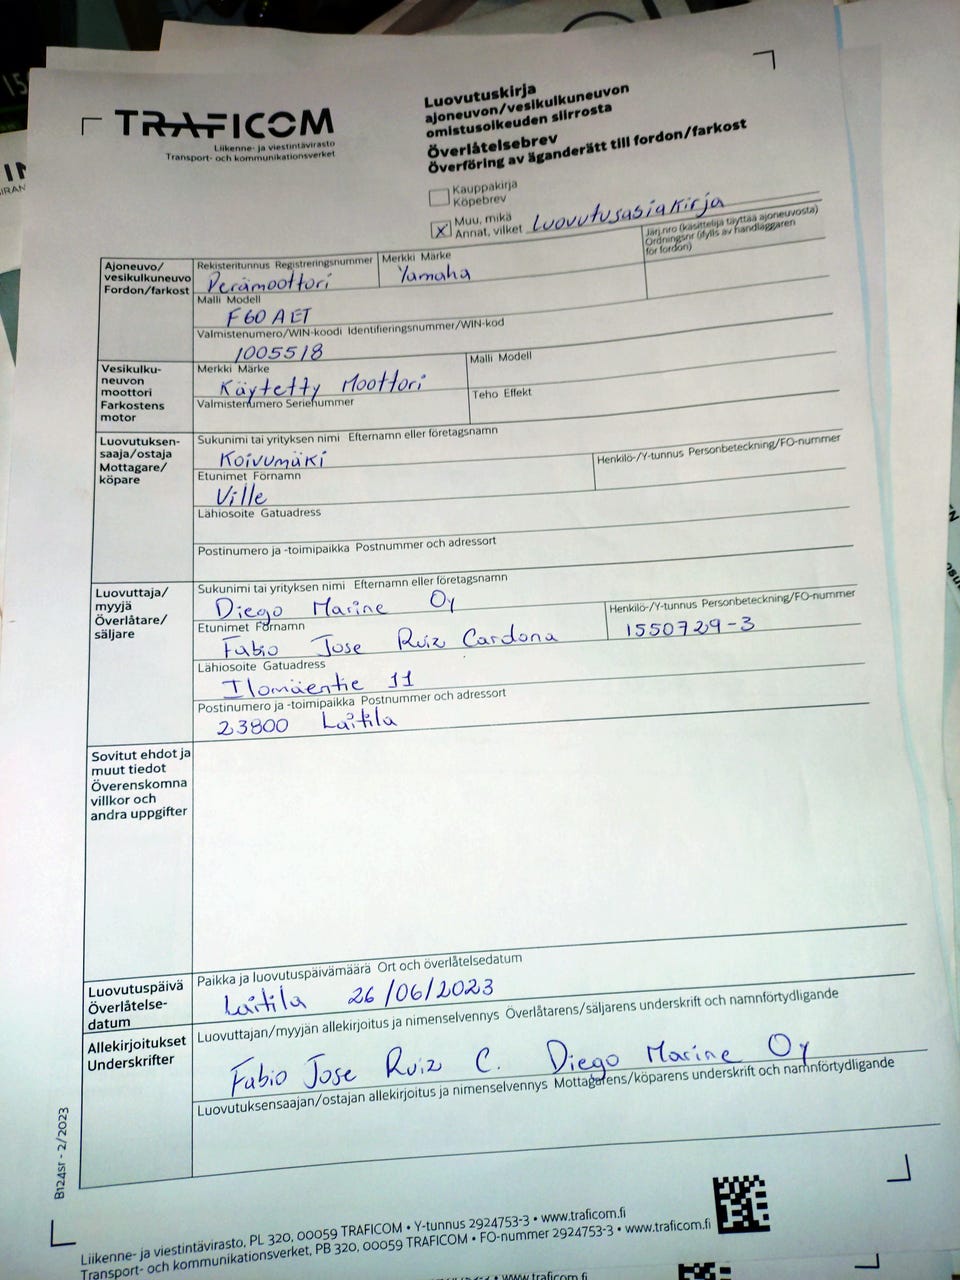 TRAFICOM
Liikenne- ja viestintävirasto
Transport- och kommunikationsverket
Luovutuskirja
ajoneuvon/vesikulkuneuvon
omistusoikeuden siirrosta
Överlåtelsebrev
Överföring av äganderätt till fordon/farkost
Kauppakirja
Köpebrev
x Muu, mikä
Annat, vilket Luovutusasiakirja
Ajoneuvo/
vesikulkuneuvo
Fordon/farkost
Rekisteritunnus Registreringsnummer
Perämoottori
Merkki Märke
Yamaha
Järj.nro (käsittelijä täyttää ajoneuvosta)
Ordningsnr (ifylls av handläggaren
för fordon)
Malli Modell
F60 AET
Valmistenumero/WIN-koodi Identifieringsnummer/WIN-kod
1005518
Vesikulku-
neuvon
moottori
Farkostens
motor
Merkki Märke
Käytetty Moottori
Malli Modell
Valmistenumero Serienummer
Teho Effekt
Luovutuksen-
saaja/ostaja
Mottagare/
köpare
Sukunimi tai yrityksen nimi Efternamn eller företagsnamn
Koivumäki
Etunimet Förnamn
Ville
Henkilö-/Y-tunnus Personbeteckning/FO-nummer
Lähiosoite Gatuadress
Postinumero ja -toimipaikka Postnummer och adressort
Luovuttaja/
myyjä
Överlåtare/
säljare
Sukunimi tai yrityksen nimi Efternamn eller företagsnamn
Diego Marine Oy
Etunimet Förnamn
Fabio Jose Ruiz Cardona
Henkilö-/Y-tunnus Personbeteckning/FO-nummer
1550729-3
Lähiosoite Gatuadress
Ilomäentie 11
Postinumero ja -toimipaikka Postnummer och adressort
23800 Laitila
Sovitut ehdot ja
muut tiedot
Överenskomna
villkor och
andra uppgifter
Luovutuspäivä
Överlåtelse-
datum
Paikka ja luovutuspäivämäärä Ort och överlåtelsedatum
Laitila 26/06/2023
Allekirjoitukset
Underskrifter
Luovuttajan/myyjän allekirjoitus ja nimenselvennys Överlåtarens/säljarens underskrift och namnförtydligande
Fabio Jose Ruiz C. Diego Marine Oy
Luovutuksensaajan/ostajan allekirjoitus ja nimenselvennys Mottagarens/köparens underskrift och namnförtydligande
B124sr - 2/2023
Liikenne- ja viestintävirasto, PL 320, 00059 TRAFICOM • Y-tunnus 2924753-3 • www.traficom.fi
Transport- och kommunikationsverket, PB 320, 00059 TRAFICOM • FO-nummer 2924753-3 • www.traficom.fi
www.traficom.fi